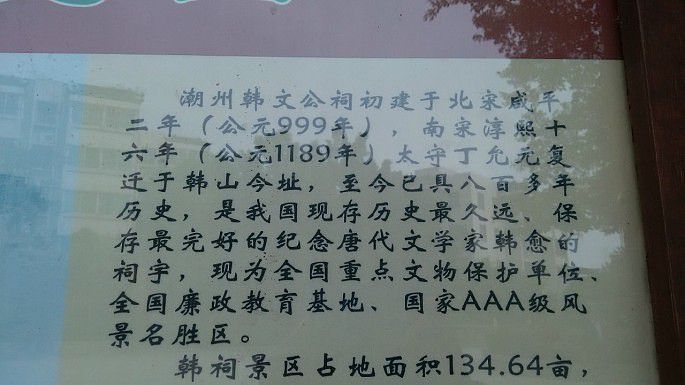 潮州韩文公祠初建于北宋咸平
二年（公元999年），南宋淳熙十
六年（公元1189年）太守丁允元复
迁于韩山今址，至今已具八百多年
历史，是我国现存历史最久远、保
存最完好的纪念唐代文学家韩愈的
祠宇，现为全国重点文物保护单位、
全国廉政教育基地、国家AAA级风
景名胜区。
韩祠景区占地面积134.64亩，